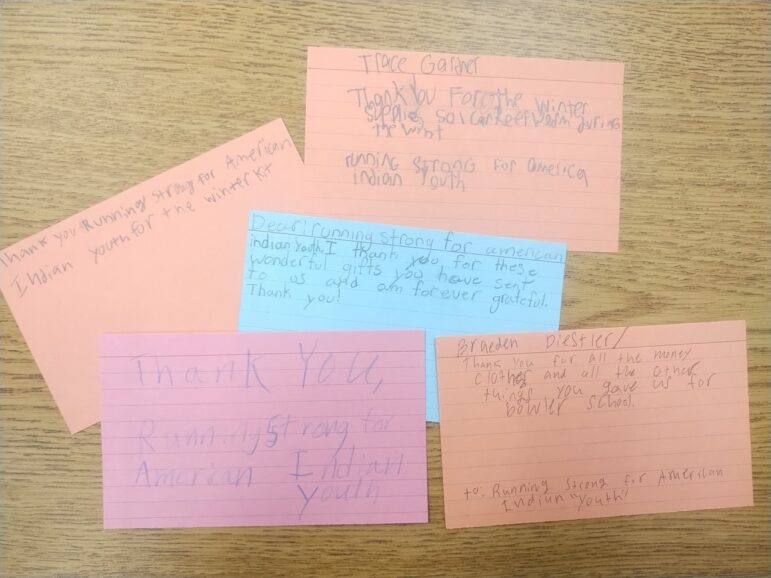 Trace Gardner
Thank You For the winter
supplies so I can keep warm during
the wint
running strong for america
indian Youth
Thank you Running Strong for American
Indian Youth for the winter Kit
Dear: running strong for american
indian Youth. I thank you for these
wonderful gifts you have sent
to us and am forever grateful.
Thank you!
Thank You,
Running Strong for
American Indian
Youth
Braeden Diestler/
Thank you for all the money
Clothes and all the other
things you gave us for
bowler school.
to: Running Strong for American
Indian Youth!